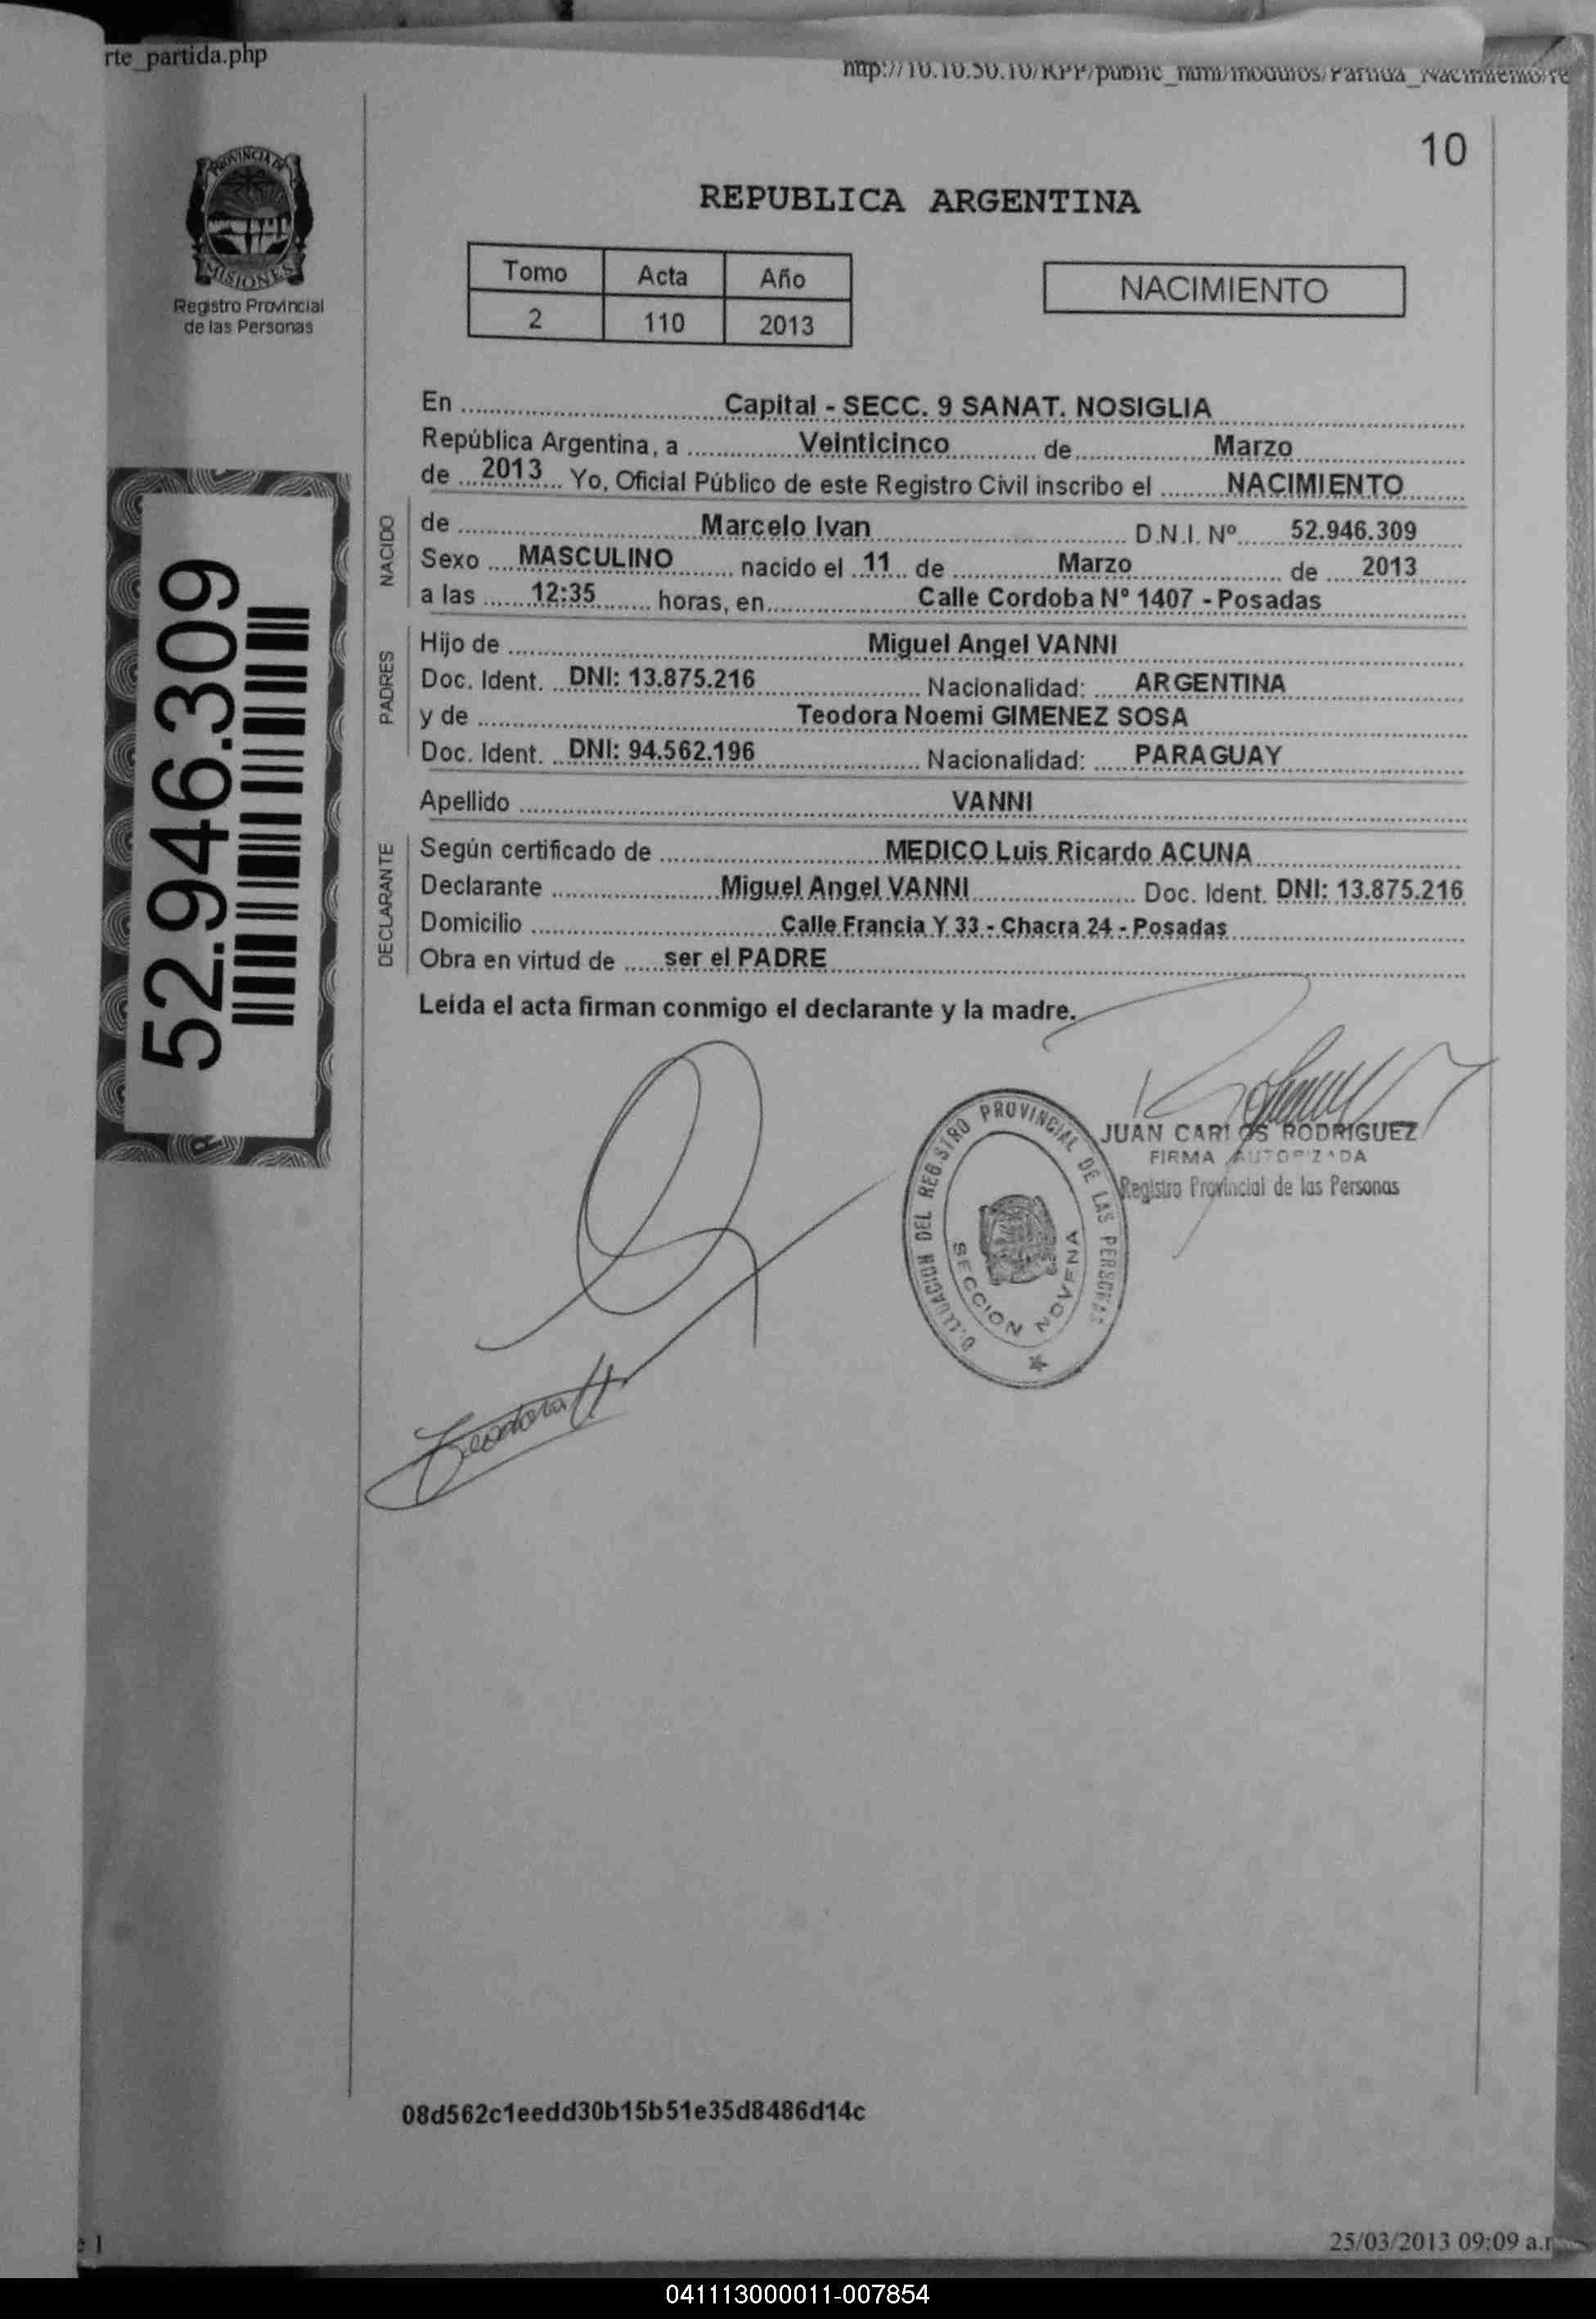 rte_partida.php
http://10.10.50.10/RPP/public_html/modulos/Partida_Nacimiento/re
10
PROVINCIA DE
MISIONES
Registro Provincial
de las Personas
REPUBLICA ARGENTINA
Tomo Acta Año
2 110 2013
NACIMIENTO
En Capital - SECC. 9 SANAT. NOSIGLIA
República Argentina, a Veinticinco de Marzo
de 2013 Yo, Oficial Público de este Registro Civil inscribo el NACIMIENTO
NACIDO
de Marcelo Ivan D.N.I. Nº 52.946.309
Sexo MASCULINO nacido el 11 de Marzo de 2013
a las 12:35 horas, en Calle Cordoba Nº 1407 - Posadas
PADRES
Hijo de Miguel Angel VANNI
Doc. Ident. DNI: 13.875.216 Nacionalidad: ARGENTINA
y de Teodora Noemi GIMENEZ SOSA
Doc. Ident. DNI: 94.562.196 Nacionalidad: PARAGUAY
Apellido VANNI
DECLARANTE
Según certificado de MEDICO Luis Ricardo ACUNA
Declarante Miguel Angel VANNI Doc. Ident. DNI: 13.875.216
Domicilio Calle Francia Y 33 - Chacra 24 - Posadas
Obra en virtud de ser el PADRE
Leída el acta firman conmigo el declarante y la madre.
52.946.309
JUAN CARLOS RODRIGUEZ
FIRMA AUTORIZADA
Registro Provincial de las Personas
DEL REGISTRO PROVINCIAL DE LAS PERSONAS
SECCION NOVENA
Teodora
08d562c1eedd30b15b51e35d8486d14c
e 1
25/03/2013 09:09 a.r
041113000011-007854